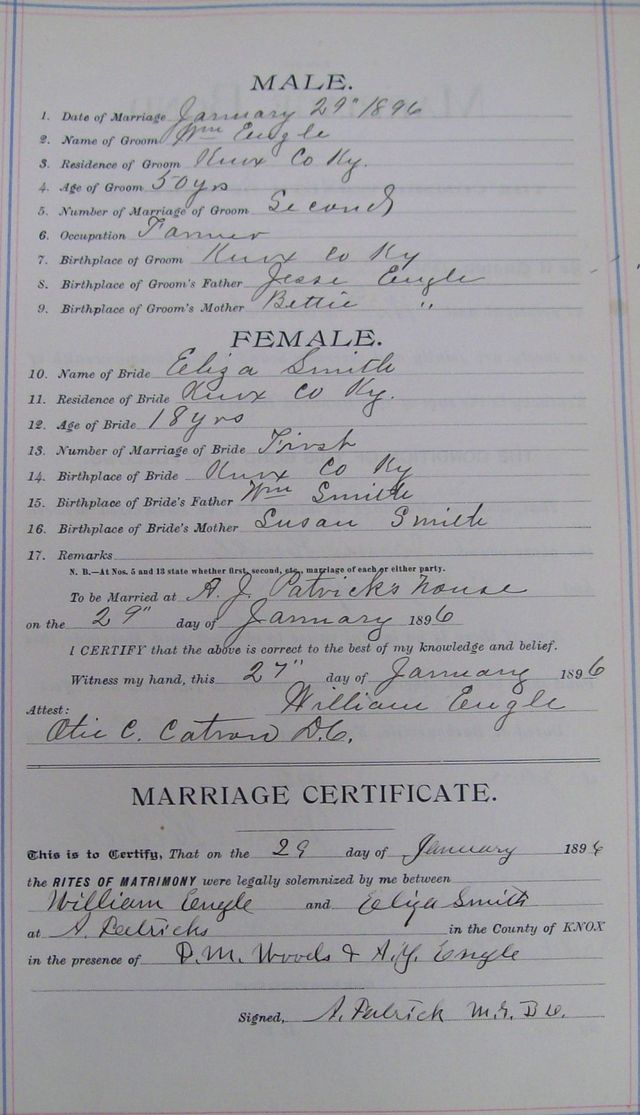 MALE.
1. Date of Marriage January 29" 1896
2. Name of Groom Wm Engle
3. Residence of Groom Knox Co Ky.
4. Age of Groom 50 yrs
5. Number of Marriage of Groom Second
6. Occupation Farmer
7. Birthplace of Groom Knox Co Ky
8. Birthplace of Groom's Father Jesse Engle
9. Birthplace of Groom's Mother Bettie "
FEMALE.
10. Name of Bride Eliza Smith
11. Residence of Bride Knox Co Ky.
12. Age of Bride 18 yrs
13. Number of Marriage of Bride First
14. Birthplace of Bride Knox Co Ky
15. Birthplace of Bride's Father Wm Smith
16. Birthplace of Bride's Mother Susan Smith
17. Remarks
N. B.—At Nos. 5 and 13 state whether first, second, etc., marriage of each or either party.
To be Married at A. J. Patricks house
on the 29" day of January 1896
I CERTIFY that the above is correct to the best of my knowledge and belief.
Witness my hand, this 27" day of January 1896
William Engle
Attest:
Otie C. Catron D.C.
MARRIAGE CERTIFICATE.
This is to Certify, That on the 29 day of January 1896
the RITES OF MATRIMONY were legally solemnized by me between
William Engle and Eliza Smith
at A. Patricks in the County of KNOX
in the presence of D. M. Woods & A. Y. Engle
Signed, A. Patrick M. G. B